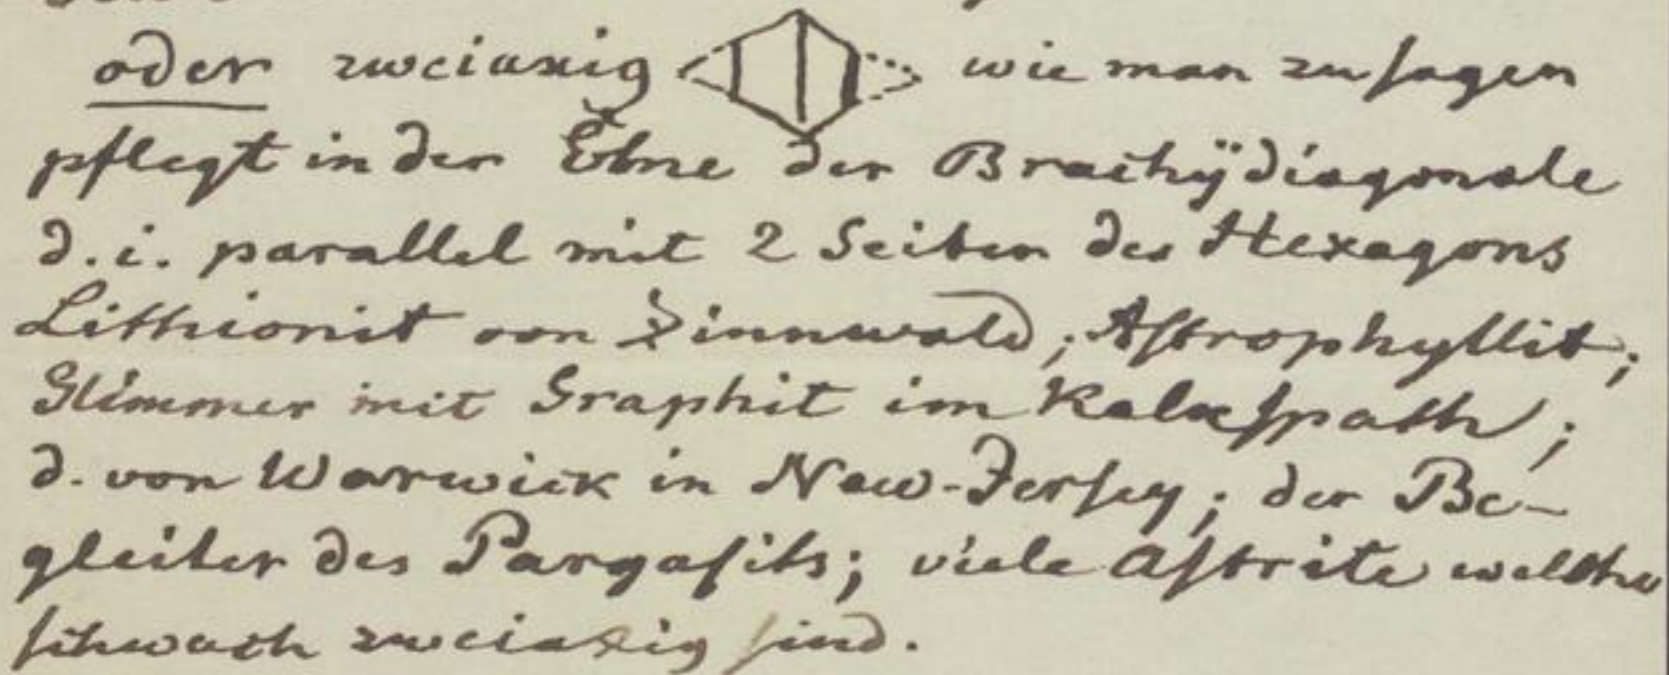 oder zweiaxig wie man zu sagen
pflegt in der Ebne der Brachÿdiagonale
d. i. parallel mit 2 Seiten des Hexagons
Lithionit von Zinnwald; Astrophyllit;
Glimmer mit Graphit im Kalkspath;
d. von Warwick in New-Jersey; der Be-
gleiter des Pargasits; viele Astrite welche
schwach zweiaxig sind.